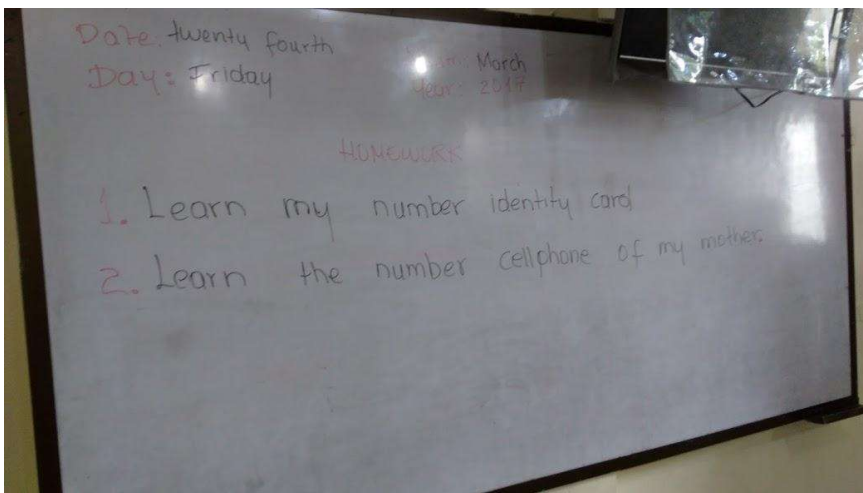 Date: twenty fourth
March
Day: Friday
Year: 2017
HOMEWORK
1. Learn my number identity card
2. Learn the number cellphone of my mother.